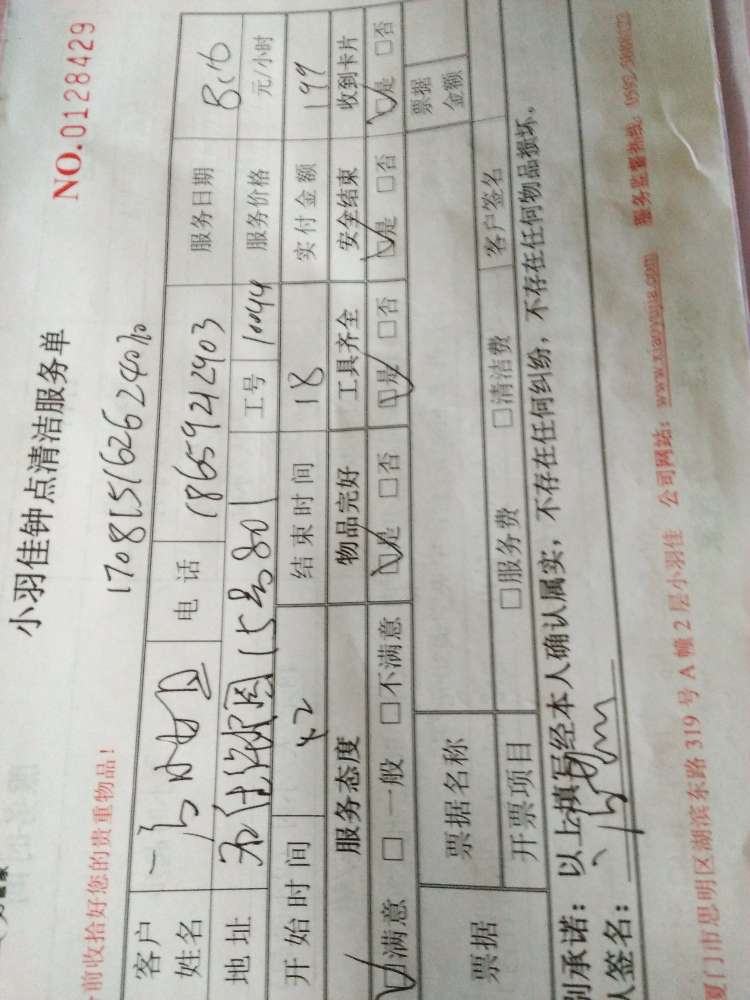 小羽佳钟点清洁服务单
NO.0128429
前收拾好您的贵重物品!
170815162624070
客户姓名 电话 18659212903 服务日期 8.16
地址 15号801 工号 10044 服务价格 元/小时
开始时间 结束时间 18 实付金额 199
服务态度 物品完好 工具齐全 安全结束 收到卡片
☑满意 □一般 □不满意 ☑是 □否 ☑是 □否 ☑是 □否 ☑是 □否
票据 票据名称 票据金额
开票项目 □服务费 □清洁费 客户签名
别承诺:以上填写经本人确认属实,不存在任何纠纷,不存在任何物品损坏。
人签名:
厦门市思明区湖滨东路 319 号 A 幢 2 层小羽佳 公司网站:www.xiaoyujia.com 服务监督热线: